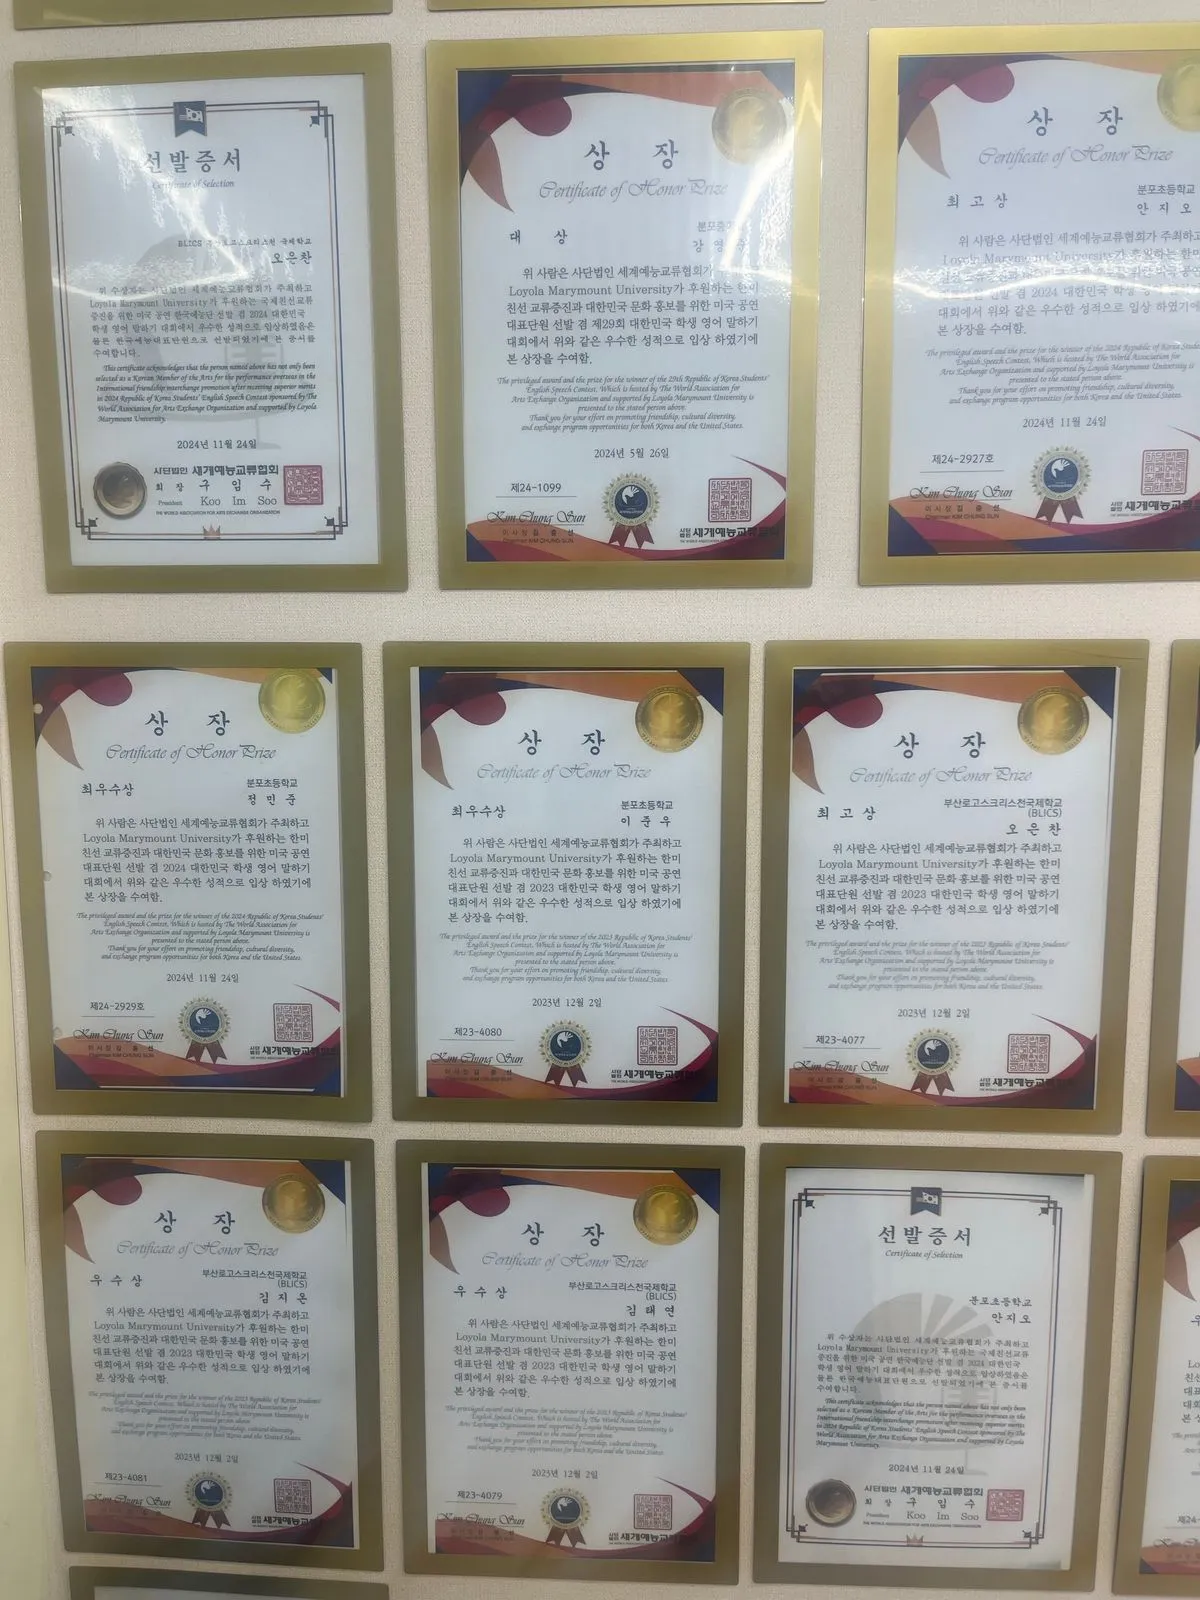 선발증서
Certificate of Selection
오은찬
위 수상자는 사단법인 세계예능교류협회가 주최하고
Loyola Marymount University가 후원하는 국제친선교류
증진을 위한 미국 공연 한국예능단 선발 겸 2024 대한민국
학생 영어 말하기 대회에서 우수한 성적으로 입상하였음은
물론 한국예능대표단원으로 선발되었기에 본 증서를
수여합니다.
This certificate acknowledges that the person named above has not only been
selected as a Korean Member of the Arts for the performance overseas in the
International friendship interchange promotion after receiving superior merits
in 2024 Republic of Korea Students' English Speech Contest sponsored by The
World Association for Arts Exchange Organization and supported by Loyola
Marymount University.
2024년 11월 24일
사단법인 세계예능교류협회
회장 구임수
President Koo Im Soo
THE WORLD ASSOCIATION FOR ARTS EXCHANGE ORGANIZATION
상 장
Certificate of Honor Prize
대 상
강영
위 사람은 사단법인 세계예능교류협회가 주최하고
Loyola Marymount University가 후원하는 한미
친선 교류증진과 대한민국 문화 홍보를 위한 미국 공연
대표단원 선발 겸 제29회 대한민국 학생 영어 말하기
대회에서 위와 같은 우수한 성적으로 입상 하였기에
본 상장을 수여함.
The privileged award and the prize for the winner of the 29th Republic of Korea Students'
English Speech Contest, Which is hosted by The World Association for
Arts Exchange Organization and supported by Loyola Marymount University is
presented to the stated person above.
Thank you for your effort on promoting friendship, cultural diversity,
and exchange program opportunities for both Korea and the United States.
2024년 5월 26일
제24-1099
Kim Chung Sun
이사장 김 충 선
Chairman KIM CHUNG SUN
사단법인 세계예능교류
상 장
Certificate of Honor Prize
최고상
분포초등학교
안지오
위 사람은 사단법인 세계예능교류협회가 주최하고
Loyola Marymount University가 후원하는 한미
친선 교류증진과 대한민국 문화 홍보를 위한 미국 공연
대표단원 선발 겸 2024 대한민국 학생 영어 말하기
대회에서 위와 같은 우수한 성적으로 입상 하였기에
본 상장을 수여함.
The privileged award and the prize for the winner of the 2024 Republic of Korea Students'
English Speech Contest, Which is hosted by The World Association for
Arts Exchange Organization and supported by Loyola Marymount University is
presented to the stated person above.
Thank you for your effort on promoting friendship, cultural diversity,
and exchange program opportunities for both Korea and the United States.
2024년 11월 24일
제24-2927호
Kim Chung Sun
이사장 김 충 선
Chairman KIM CHUNG SUN
사단법인 세계예능교류
상 장
Certificate of Honor Prize
최우수상
분포초등학교
정민준
위 사람은 사단법인 세계예능교류협회가 주최하고
Loyola Marymount University가 후원하는 한미
친선 교류증진과 대한민국 문화 홍보를 위한 미국 공연
대표단원 선발 겸 2024 대한민국 학생 영어 말하기
대회에서 위와 같은 우수한 성적으로 입상 하였기에
본 상장을 수여함.
The privileged award and the prize for the winner of the 2024 Republic of Korea Students'
English Speech Contest, Which is hosted by The World Association for
Arts Exchange Organization and supported by Loyola Marymount University is
presented to the stated person above.
Thank you for your effort on promoting friendship, cultural diversity,
and exchange program opportunities for both Korea and the United States.
2024년 11월 24일
제24-2929호
Kim Chung Sun
이사장 김 충 선
Chairman KIM CHUNG SUN
사단법인 세계예능교류
상 장
Certificate of Honor Prize
최우수상
분포초등학교
이준우
위 사람은 사단법인 세계예능교류협회가 주최하고
Loyola Marymount University가 후원하는 한미
친선 교류증진과 대한민국 문화 홍보를 위한 미국 공연
대표단원 선발 겸 2023 대한민국 학생 영어 말하기
대회에서 위와 같은 우수한 성적으로 입상 하였기에
본 상장을 수여함.
The privileged award and the prize for the winner of the 2023 Republic of Korea Students'
English Speech Contest, Which is hosted by The World Association for
Arts Exchange Organization and supported by Loyola Marymount University is
presented to the stated person above.
Thank you for your effort on promoting friendship, cultural diversity,
and exchange program opportunities for both Korea and the United States.
2023년 12월 2일
제23-4080
Kim Chung Sun
이사장 김 충 선
Chairman KIM CHUNG SUN
사단법인 세계예능교류
상 장
Certificate of Honor Prize
최고상
부산로고스크리스천국제학교
(BLICS)
오은찬
위 사람은 사단법인 세계예능교류협회가 주최하고
Loyola Marymount University가 후원하는 한미
친선 교류증진과 대한민국 문화 홍보를 위한 미국 공연
대표단원 선발 겸 2023 대한민국 학생 영어 말하기
대회에서 위와 같은 우수한 성적으로 입상 하였기에
본 상장을 수여함.
The privileged award and the prize for the winner of the 2023 Republic of Korea Students'
English Speech Contest, Which is hosted by The World Association for
Arts Exchange Organization and supported by Loyola Marymount University is
presented to the stated person above.
Thank you for your effort on promoting friendship, cultural diversity,
and exchange program opportunities for both Korea and the United States.
2023년 12월 2일
제23-4077
Kim Chung Sun
사단법인 세계예능교류
상 장
Certificate of Honor Prize
우수상
부산로고스크리스천국제학교
(BLICS)
김지온
위 사람은 사단법인 세계예능교류협회가 주최하고
Loyola Marymount University가 후원하는 한미
친선 교류증진과 대한민국 문화 홍보를 위한 미국 공연
대표단원 선발 겸 2023 대한민국 학생 영어 말하기
대회에서 위와 같은 우수한 성적으로 입상 하였기에
본 상장을 수여함.
The privileged award and the prize for the winner of the 2023 Republic of Korea Students'
English Speech Contest, Which is hosted by The World Association for
Arts Exchange Organization and supported by Loyola Marymount University is
presented to the stated person above.
Thank you for your effort on promoting friendship, cultural diversity,
and exchange program opportunities for both Korea and the United States.
2023년 12월 2일
제23-4081
Kim Chung Sun
사단법인 세계예능교류
상 장
Certificate of Honor Prize
우수상
부산로고스크리스천국제학교
(BLICS)
김태연
위 사람은 사단법인 세계예능교류협회가 주최하고
Loyola Marymount University가 후원하는 한미
친선 교류증진과 대한민국 문화 홍보를 위한 미국 공연
대표단원 선발 겸 2023 대한민국 학생 영어 말하기
대회에서 위와 같은 우수한 성적으로 입상 하였기에
본 상장을 수여함.
The privileged award and the prize for the winner of the 2023 Republic of Korea Students'
English Speech Contest, Which is hosted by The World Association for
Arts Exchange Organization and supported by Loyola Marymount University is
presented to the stated person above.
Thank you for your effort on promoting friendship, cultural diversity,
and exchange program opportunities for both Korea and the United States.
2023년 12월 2일
제23-4079
Kim Chung Sun
사단법인 세계예능교류
선발증서
Certificate of Selection
분포초등학교
안지오
위 수상자는 사단법인 세계예능교류협회가 주최하고
Loyola Marymount University가 후원하는 국제친선교류
증진을 위한 미국 공연 한국예능단 선발 겸 2024 대한민국
학생 영어 말하기 대회에서 우수한 성적으로 입상하였음은
물론 한국예능대표단원으로 선발되었기에 본 증서를
수여합니다.
This certificate acknowledges that the person named above has not only been
selected as a Korean Member of the Arts for the performance overseas in the
International friendship interchange promotion after receiving superior merits
in 2024 Republic of Korea Students' English Speech Contest sponsored by The
World Association for Arts Exchange Organization and supported by Loyola
Marymount University.
2024년 11월 24일
사단법인 세계예능교류협회
회장 구임수
President Koo Im Soo
THE WORLD ASSOCIATION FOR ARTS EXCHANGE ORGANIZATION